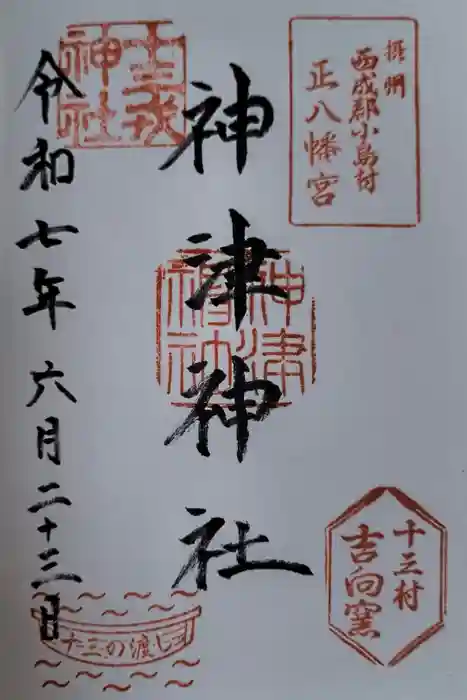 摂州
西成郡小島村
正八幡宮
神津神社
神津神社
十三戎神社
令和七年六月二十三日
十三村
吉向窯
十三の渡し